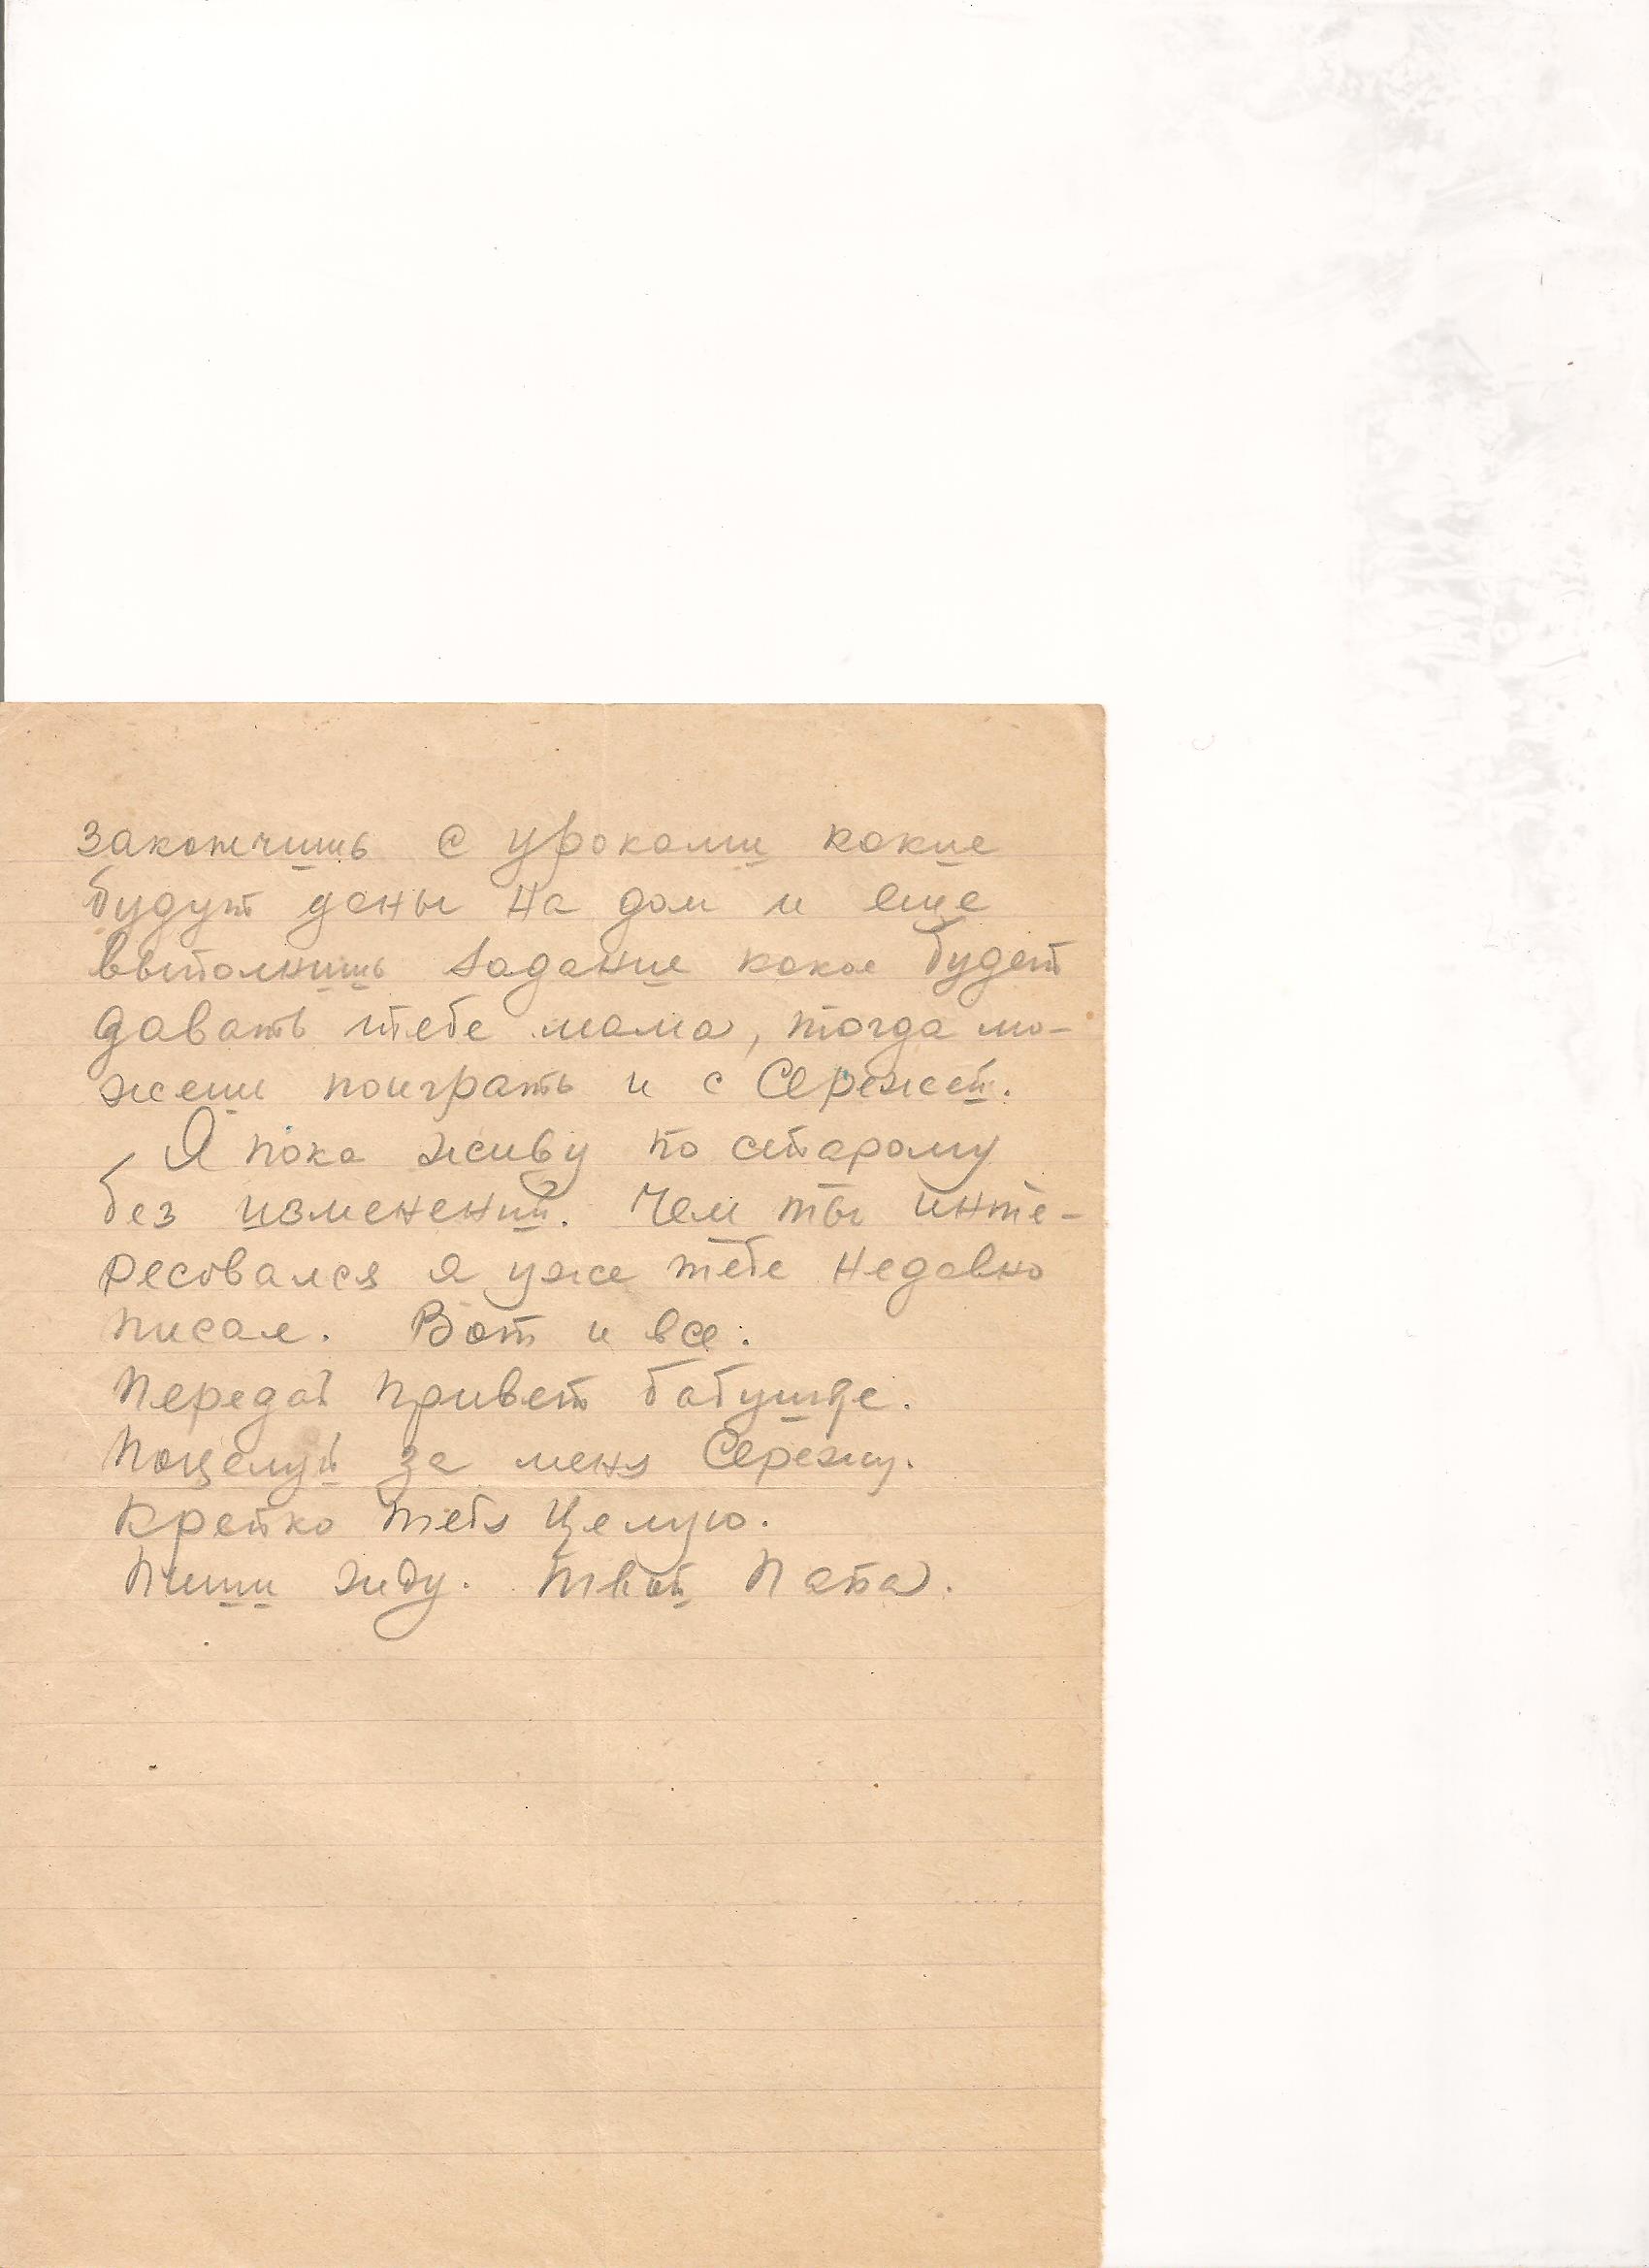 закончишь с уроками какие
будут даны на дом и еще
выполнишь задание какое будет
давать тебе мама, тогда мо-
жеш поиграть и с Сережей.
Я пока живу по старому
без изменений. Чем ты инте-
ресовался я уже тебе недавно
писал. Вот и все.
Передай привет бабушке.
Поцелуй за меня Сережу.
Крепко тебя целую.
Пиши жду. Твой Папа.